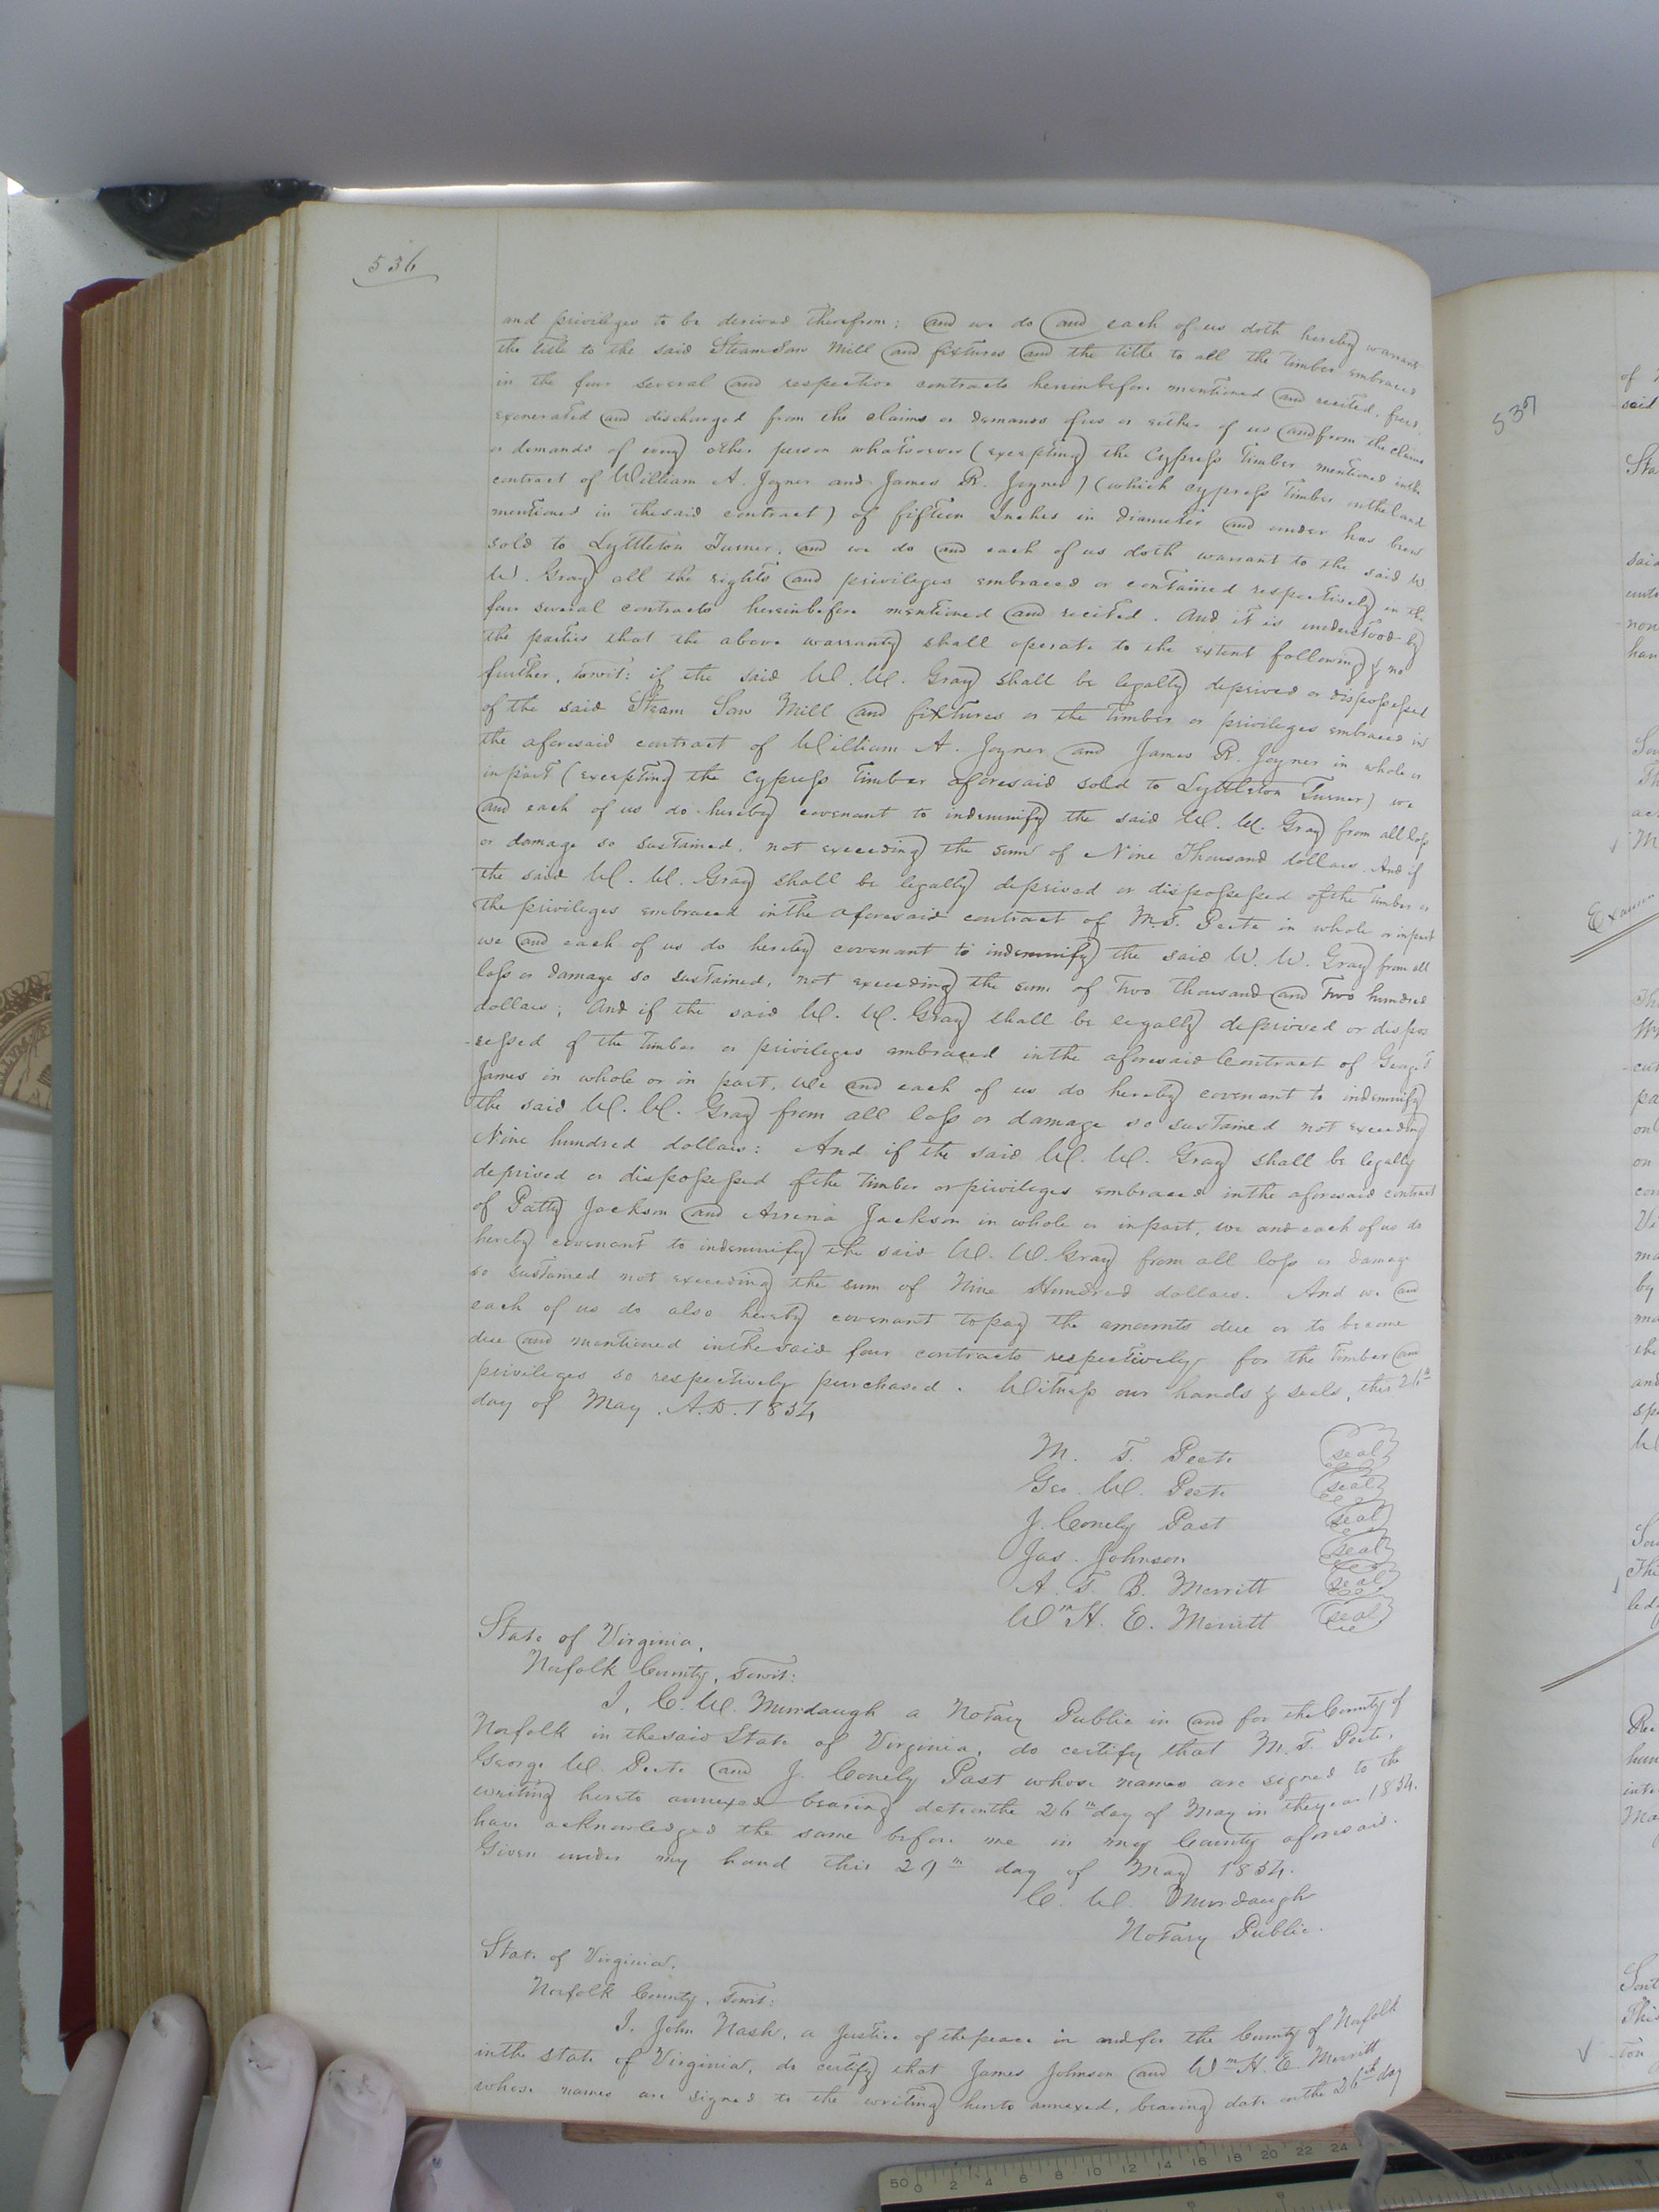 536
and privileges to be derived therefrom; and we do and each of us doth hereby warrant
the title to the said Steam Saw Mill and fixtures and the title to all the timber embraced
in the four several and respective contracts hereinbefore mentioned and recited, freed,
exonerated and discharged from the claims or demands of us or either of us and from the claims
or demands of every other person whatsoever (excepting the Cypress timber mentioned in the
contract of William A. Joyner and James R. Joyner) (which cypress timber on the land
mentioned in the said contract) of fifteen Inches in diameter and under has been
sold to Lyttleton Turner, and we do and each of us doth warrant to the said W
W. Gray all the rights and privileges embraced or contained respectively in the
four several contracts hereinbefore mentioned and recited. And it is understood by
the parties that the above warranty shall operate to the extent following & no
further, towit: if the said W. W. Gray shall be legally deprived or dispossessed
of the said Steam Saw Mill and fixtures or the timber or privileges embraced in
the aforesaid contract of William A. Joyner and James R. Joyner in whole or
in part (excepting the Cypress timber aforesaid sold to Lyttleton Turner) we
and each of us do hereby covenant to indemnify the said W. W. Gray from all loss
or damage so sustained, not exceeding the sum of Nine Thousand dollars. And if
the said W. W. Gray shall be legally deprived or dispossessed of the timber or
the privileges embraced in the aforesaid contract of M. T. Peete in whole or in part
we and each of us do hereby covenant to indemnify the said W. W. Gray from all
loss or damage so sustained, not exceeding the sum of Two thousand and Two hundred
dollars; And if the said W. W. Gray shall be legally deprived or dispos
-sessed of the timber or privileges embraced in the aforesaid Contract of George T.
James in whole or in part, We and each of us do hereby covenant to indemnify
the said W. W. Gray from all loss or damage so sustained not exceeding
Nine hundred dollars: And if the said W. W. Gray shall be legally
deprived or dispossessed of the timber or privileges embraced in the aforesaid contract
of Patty Jackson and Jackson in whole or in part, we and each of us do
hereby covenant to indemnify the said W. W. Gray from all loss or damage
so sustained not exceeding the sum of Nine Hundred dollars. And we and
each of us do also hereby covenant to pay the amounts due or to become
due and mentioned in the said four contracts respectively for the timber and
privileges so respectively purchased. Witness our hands & seals, this 26th
day of May, A.D. 1854
M. T. Peete seal
Geo. W. Peete seal
J. Conely Past seal
Jas. Johnson seal
A. T. B. Merritt seal
Wm H. E. Merritt seal
State of Virginia,
Norfolk County, Towit:
I, C. W. Murdaugh a Notary Public in and for the County of
Norfolk in the said State of Virginia, do certify that M. T. Peete,
George W. Peete and J. Conely Past whose names are signed to the
writing hereto annexed bearing date on the 26th day of May in the year 1854.
have acknowledged the same before me in my County aforesaid.
Given under my hand this 29th day of May 1854.
C. W. Murdaugh
Notary Public.
State of Virginia,
Norfolk County, Towit:
I, John Nash, a Justice of the peace in and for the County of Norfolk
in the state of Virginia, do certify that James Johnson and Wm H. E. Merritt
whose names are signed to the writing hereto annexed, bearing date on the 26th day
537
of
said
50 0 2 4 6 8 10 12 14 16 18 20 22 24